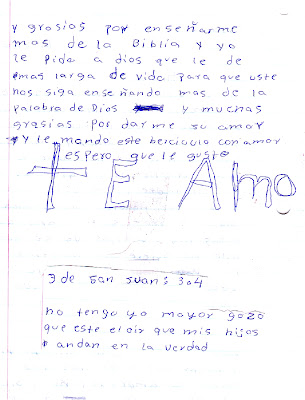 y grasias por enseñarme
mas de la Biblia y yo
le pido a dios que le de
mas larga de vida para que uste
nos siga enseñando mas de la
palabra de Dios y muchas
grasias por darme su amor
y le mando este berciculo con amor
espero que le guste
TE Amo
3 de san Juan: 3o4
no tengo yo mayor gozo
que este el oir que mis hijos
andan en la verdad